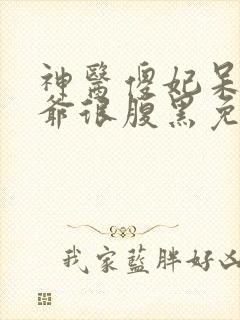 神醫傻妃呆
爺很腹黑免
我家藍胖好凶